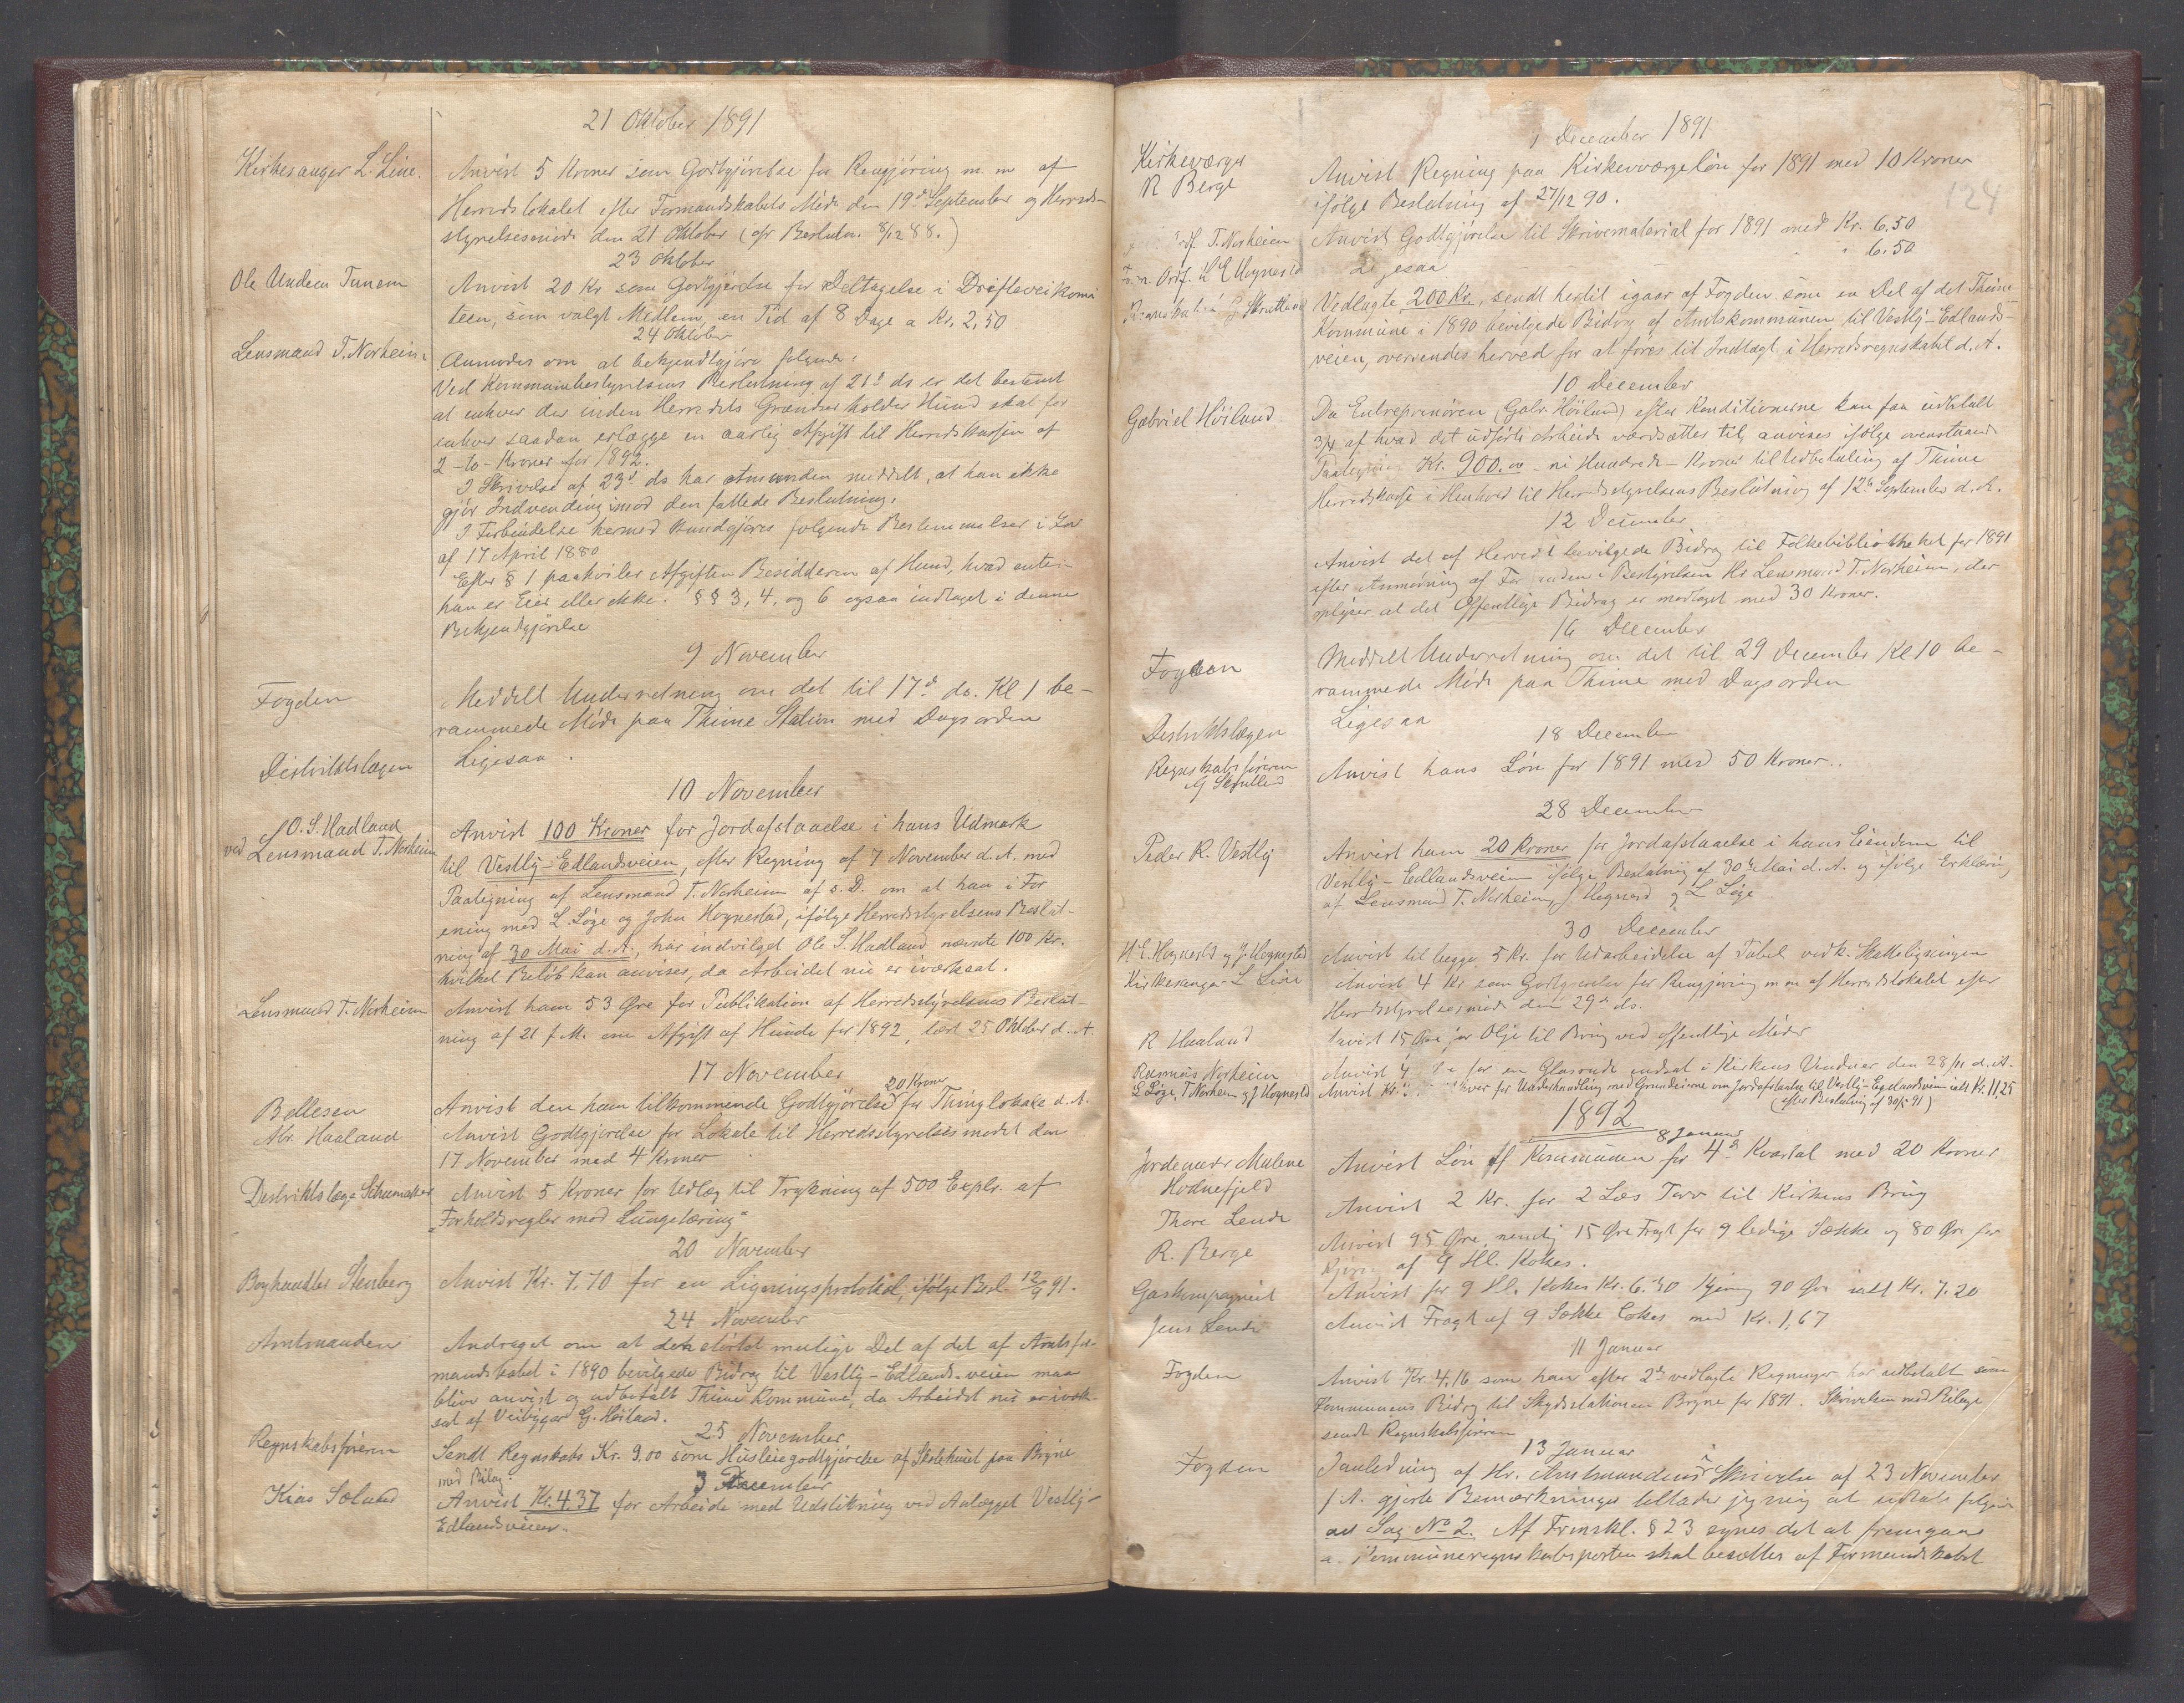 21 Oktober 1891
Kirkesanger L. Line.
Anvist 5 Kroner som Godtgjörelse for Rengjöring m. m. af
Herredslokalet efter Formandskabets Möde den 19de September og Herreds-
styrelsesmöde den 21 Oktober (cfr Beslutn. 8/12 88.)
23 Oktober
Ole Undem Tunem
Anvist 20 Kr som Godtgjörelse for Deltagelse i Drifteveikomi
teen, som valgt Medlem, en Tid af 8 Dage a Kr. 2,50
24 Oktober
Lensmand T. Norheim
Anmodes om at bekjendtgjöre følgende:
Ved Kommunebestyrelsens Beslutning af 21d ds er det bestemt
at enhver der inden Herredets Grændser holder Hund skal for
enhver saadan erlægge en aarlig Afgift til Herredskassen af
2 - to - Kroner for 1892.
I Skrivelse af 23d ds har Amtmanden meddelt, at han ikke
gjör Indvending imod den fattede Beslutning.
I Forbindelse hermed kundgjöres følgende Bestemmelser i Lov
af 17 April 1880
Efter § 1 paahviler Afgiften Besidderen af Hund, hvad enten
han er Eier eller ikke. §§ 3, 4, og 6 ogsaa indtaget i denne
Bekjendtgjörelse
9 November
Fogden
Meddelt Underretning om det til 17d ds. Kl 1 be-
rammede Möde paa Thime Station med Dagsorden
Distriktslægen
Ligesaa.
10 November
O. S. Hadland
ved Lensmand T. Norheim
Anvist 100 Kroner for Jordafstaaelse i hans Udmark
til Vestly-Edlandsveien, efter Regning af 7 November d. A. med
Paategning af Lensmand T. Norheim af s. D. om at han i For
ening med L. Löge og John Hognestad, ifölge Herredsstyrelsens Beslut-
ning af 30 Mai d. A., har indvilget Ole S. Hadland nævnte 100 Kr.
hvilket Belöb kan anvises, da Arbeidet nu er iværksat.
Lensmand T. Norheim
Anvist ham 53 Øre for Publikation af Herredsstyrelsens Beslut-
ning af 21 f. M. om Afgift af Hunde for 1892, læst 25 Oktober d. A.
17 November
20 Kroner
Bellesen
Anvist den ham tilkommende Godtgjörelse for Thinglokale d. A.
Abr. Haaland
Anvist Godtgjörelse for Lokale til Herredsstyrelsesmödet den
17 November med 4 Kroner
Distriktslæge
Anvist 5 Kroner for Udlæg til Trykning af 500 Explr. af
"Forholdsregler mod Lungetæring"
20 November
Boghandler Stenberg
Anvist Kr. 7.70 for en Ligningsprotokol, ifölge Besl. 12/9 91.
24 November
Amtmanden
Andraget om at den störst mulige Del af det af Amtsfor-
mandskabet i 1890 bevilgede Bidrag til Vestly-Edlands-veien maa
blive anvist og udbetalt Thime Kommune, da Arbeidet nu er iværk-
sat af Veibygger G. Höiland.
25 November
Regnskabsföreren
Sendt Regnskabs Kr. 9.00 som Husleiegodtgjörelse af Skolehuset paa Bryne
med Bilag.
3 December
Anvist Kr. 4.37 for Arbeide med Udstikning ved Anlægget Vestly-
Edlandsveien.
1 December 1891
124
Kirkeværge
R Berge
Anvist Regning paa Kirkeværgelön for 1891 med 10 Kroner
ifölge Beslutning af 27/12 90.
Ordf. T. Norheim
Anvist Godtgjörelse til Skrivematerial for 1891 med Kr. 6.50
Ordf. L E Hognestad
Ligesaa " " 6.50
G Skretland
Vedlagte 200 Kr., sendt hertil igaar af Fogden som en Del af det Thime
Kommune i 1890 bevilgede Bidrag af Amtskommunen til Vestly-Edlands-
veien, oversendes herved for at föres til Indtægt i Herredsregnskabet d. A.
10 December
Gabriel Höiland
Da Entreprenören (Gabr. Höiland) efter Konditionerne kan faa udbetalt
3/4 af hvad det udförte Arbeide værdsættes til, anvises ifölge ovenstaaende
Paategning Kr. 900.00 - ni Hundrede - Kroner til Udbetaling af Thime
Herredskasse i Henhold til Herredsstyrelsens Beslutning af 12te September d. A.
12 December
Anvist det af Herredet bevilgede Bidrag til Folkebibliotheket for 1891
efter Anmodning af Formanden i Bestyrelsen Hr Lensmand T. Norheim, der
oplyser at det Offentlige Bidrag er modtaget med 30 Kroner.
16 December
Fogden
Meddelt Underretning om det til 29 December Kl 10 be-
rammede Möde paa Thime med Dagsorden
Distriktslægen
Ligesaa
18 December
Regnskabsföreren
G Skretland
Anvist hans Lön for 1891 med 50 Kroner.
28 December
Peder R. Vestly
Anvist ham 20 Kroner for Jordafstaaelse i hans Eiendom til
Vestly-Edlandsveien ifölge Beslutning af 30te Mai d. A. og ifölge Erklæring
af Lensmand T. Norheim, J. Hognestad og L Löge
30 December
H E. Hognestad og J. Hognestad
Anvist til begge 5 Kr. for Udarbeidelse af Tabel vedk. Skatteligningen
Kirkesanger L Line
Anvist 4 Kr som Godtgjörelse for Rengjöring m m af Herredslokalet efter
Herredsstyrelsesmöde den 29de ds.
R Haaland
Anvist 15 Øre for Olje til Brug ved offentlige Möder
Rasmus Norheim
Anvist for en Glasrude indsat i Kirkens Vinduer den 28/11 d. A.
L Löge, T Norheim og J Hognestad
Anvist Kr. hver for Underhandling med Grundeierne om Jordafstaaelse til Vestly-Edlandsveien ialt Kr. 11,25
(efter Beslutning af 30/5 91)
1892
8 Januar
Jordemoder Malene
Hodnefjeld
Anvist Lön af Kommunen for 4de Kvartal med 20 Kroner
Thore Lende
Anvist 2 Kr. for 2 Læs Torv til Kirkens Brug
R. Berge
Anvist 95 Øre, nemlig 15 Øre Fragt for 9 ledige Sække og 80 Øre for
Kjöring af 9 Hl. Kokes.
Gaskompagniet
Anvist for 9 Hl. Kokes Kr. 6.30 Kjöring 90 Øre ialt Kr. 7.20
Jens Lende
Anvist Fragt af 9 Sække Cokes med Kr. 1,67
11 Januar
Fogden
Anvist Kr. 4.16 som han efter 2de vedlagte Regninger har udbetalt som
Kommunens Bidrag til Skydsstationen Bryne for 1891. Skrivelsen med Bilage
sendt Regnskabsföreren
13 Januar
Fogden
I Anledning af Hr. Amtmandens i Skrivelse af 23 November
f. A. gjorte Bemærkninger tillader jeg mig at udtale fölgende
ad Sag No 2. Af Frmskl. § 23 synes det at fremgaa
at Kommuneregnskabsposten skal besættes af Formandskabet